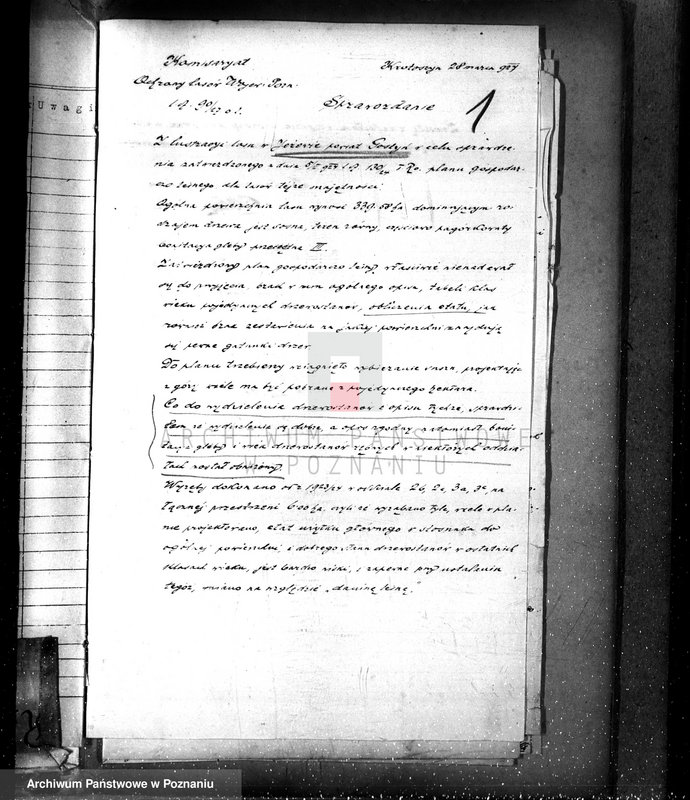 Uwagi
Komisaryat
Krotoszyn 28 marca 924
Ochrony lasów Wojew. Pozn.
Sprawozdanie
1
Z lustracji lasu w powiat Gostyń w celu sprawdze-
nia zatwierdzonego z dnia planu gospodar-
czo leśnego dla lasów tejże majętności.
Ogólna powierzchnia lasu wynosi dominującym ro-
dzajem drzewa jest sosna, teren równy, częściowo pagórkowaty
bonitacja gleby przeciętna III.
Zatwierdzony plan gospodarczo leśny właściwie nienadawał
się do przyjęcia, brak w nim ogólnego opisu, tabeli klas
wieku pojedynczych drzewostanów, obliczenia etatu, jak
również brak zestawienia na jakiej powierzchni znajdują
się pewne gatunki drzew.
Do planu trzebieży wciągnięto wybieranie projektując
z góry wiele ma być pobrane z pojedynczego hektara.
Co do wydzielenia drzewostanów i opisu tychże, sprawdzi-
łem że wydzielenie są dobre, a opis zgodny, natomiast boni-
tacja gleby i wiek drzewostanów w niektórych oddzia-
łach został obniżony.
Wyręby dokonano od r. 1923/24 w oddziale 2b, 2c, 3a, na
łącznej przestrzeni czyli że wyrąbano tyle, wiele w pla-
nie projektowano, etat użytku głównego w stosunku do
ogólnej powierzchni, i dobrego stanu drzewostanów w ostatnich
klasach wieku, jest bardzo niski, i zapewne przy ustaleniu
tegoż, miano na względzie „daninę leśną."
ARCHIWUM PAŃSTWOWE
W POZNANIU
Archiwum Państwowe w Poznaniu